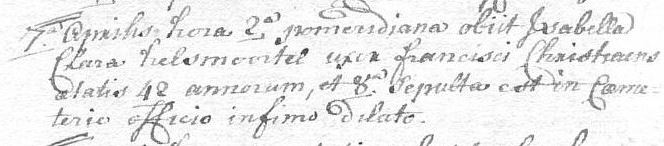 7.ª Aprilis hora 2.ª pomeridiana obiit Isabella
Clara helsmortel uxor francisci Christiaens
ætatis 42 annorum, et 8.ª Sepulta est in Cæme-
terio officio infimo dilato.